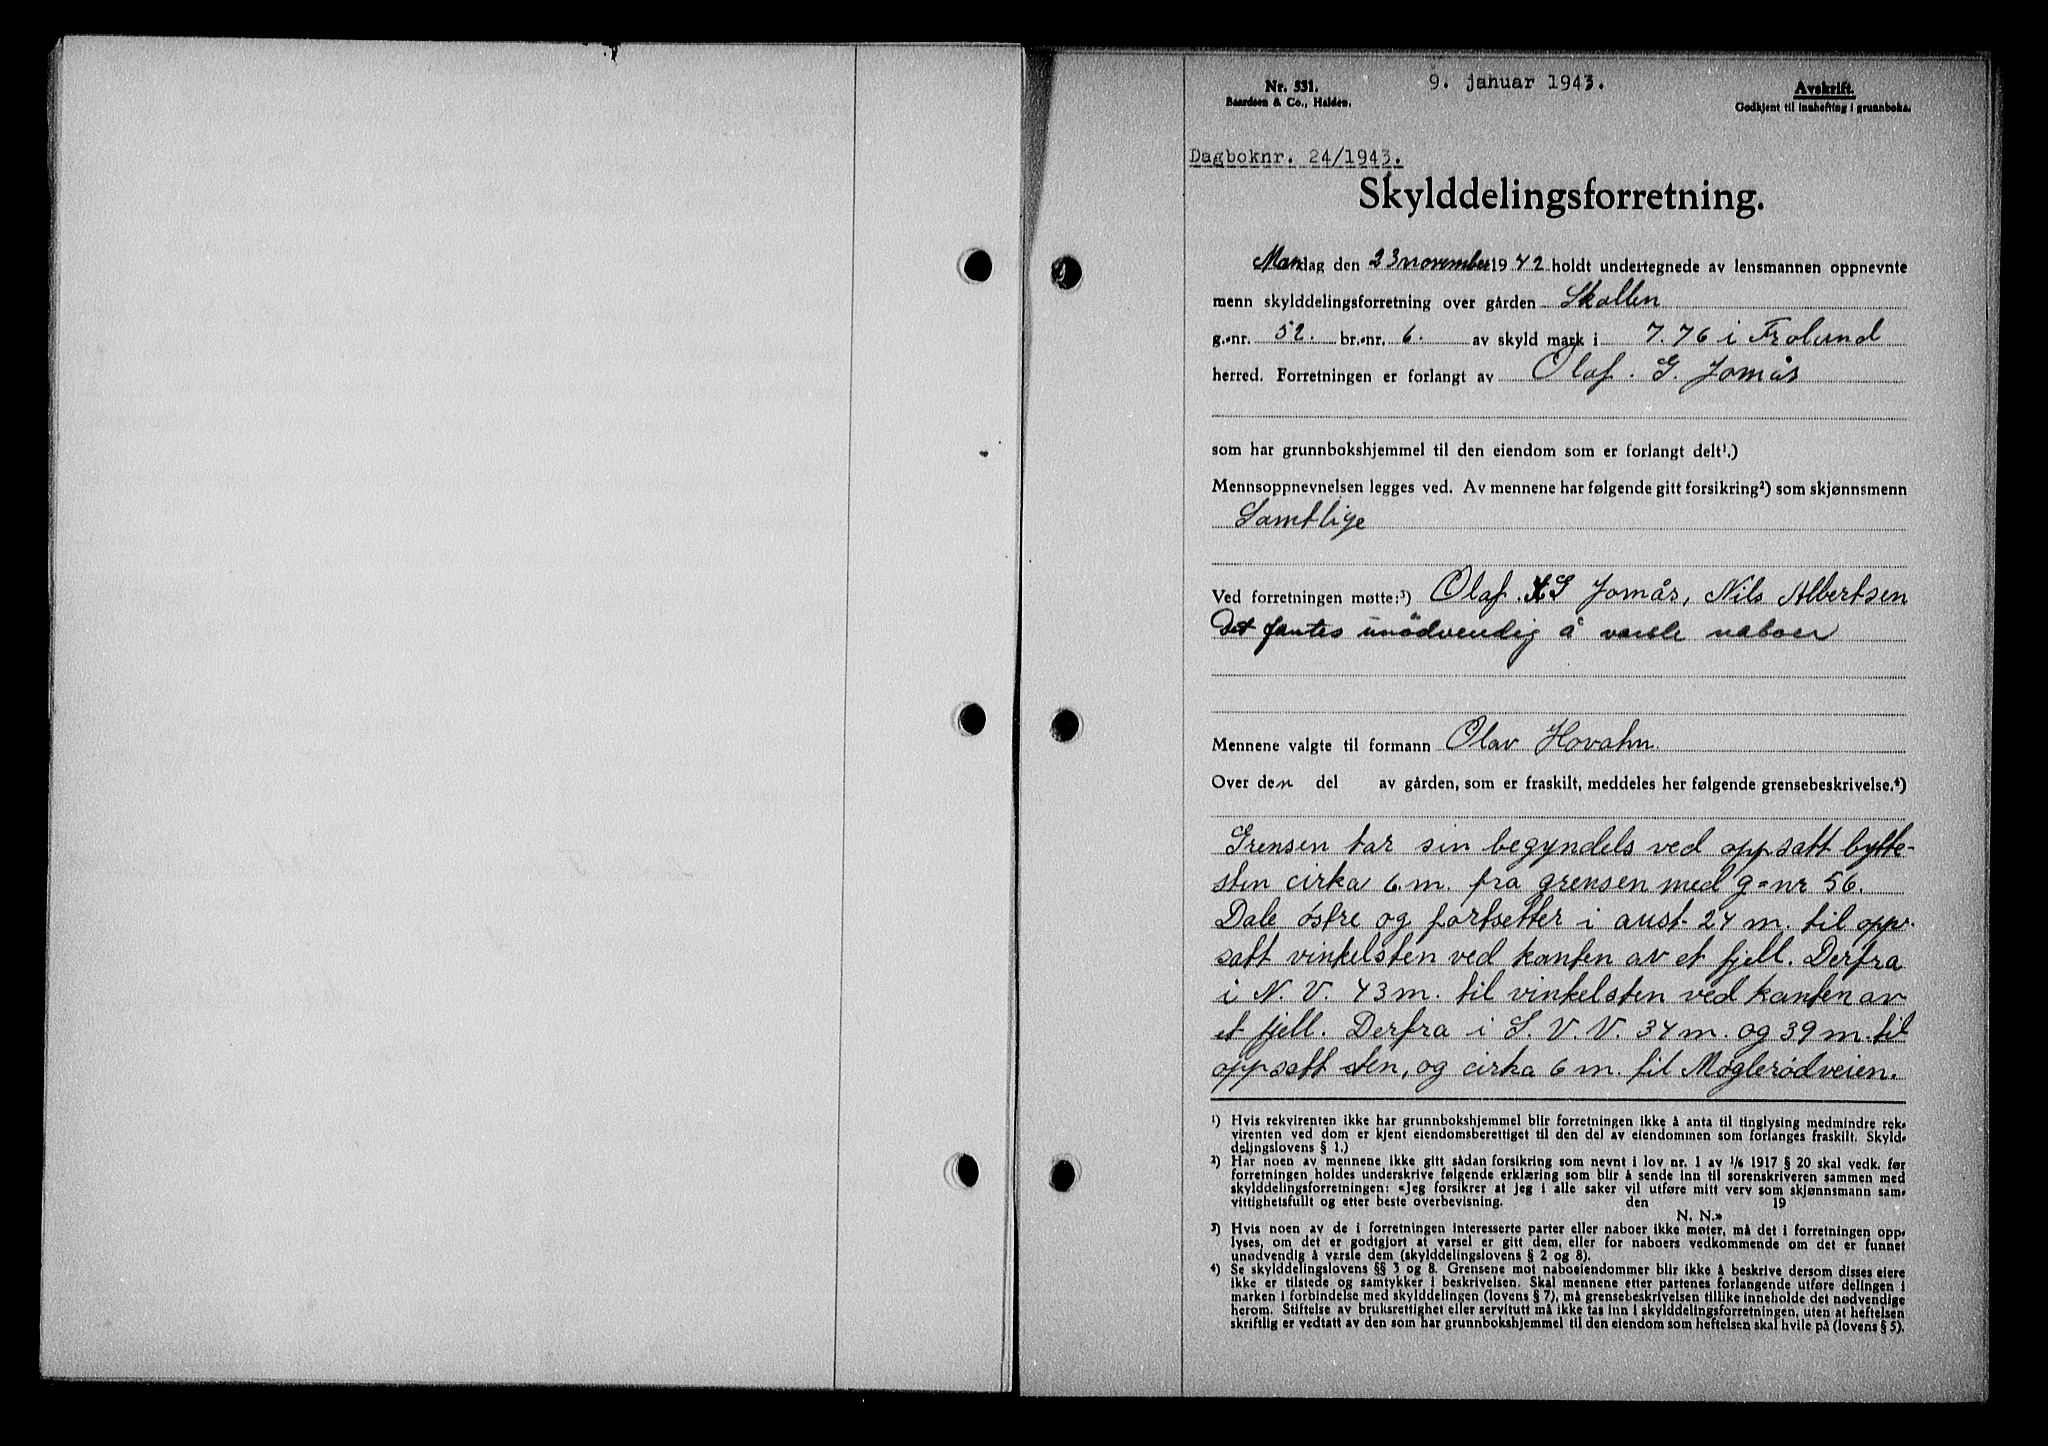 Nr. 531.
Baardsen & Co., Halden.
9. januar 1943.
Avskrift.
Godkjent til innhefting i grunnboka.
Dagboknr. 24/1943.
Skylddelingsforretning.
Mandag den 23 november 1942 holdt undertegnede av lensmannen oppnevnte
menn skylddelingsforretning over gården Skallen
g.-nr. 52. br.-nr. 6. av skyld mark i 7.76 i Froland
herred. Forretningen er forlangt av Olaf. G. Jomås
som har grunnbokshjemmel til den eiendom som er forlangt delt¹.)
Mennsoppnevnelsen legges ved. Av mennene har følgende gitt forsikring²) som skjønnsmenn
Samtlige
Ved forretningen møtte:³) Olaf. G Jomås, Nils Albertsen
Det fantes unödvendig å varsle naboer
Mennene valgte til formann Olav Hovatn.
Over den del av gården, som er fraskilt, meddeles her følgende grensebeskrivelse.⁴)
Grensen tar sin begyndels ved oppsatt bytte-
sten cirka 6 m. fra grensen med g=nr 56.
Dale östre og fortsetter i aust 24 m. til opp-
satt vinkelsten ved kanten av et fjell. Derfra
i N. V. 43 m. til vinkelsten ved kanten av
et fjell. Derfra i S. V. V. 34 m. og 39 m. til
oppsatt sten, og cirka 6 m. til Moglerödveien.
¹) Hvis rekvirenten ikke har grunnbokshjemmel blir forretningen ikke å anta til tinglysing medmindre rek-
virenten ved dom er kjent eiendomsberettiget til den del av eiendommen som forlanges fraskilt. Skyld-
delingslovens § 1.)
²) Har noen av mennene ikke gitt sådan forsikring som nevnt i lov nr. 1 av 1/6 1917 § 20 skal vedk. før
forretningen holdes underskrive følgende erklæring som blir å sende inn til sorenskriveren sammen med
skylddelingsforretningen: «Jeg forsikrer at jeg i alle saker vil utføre mitt verv som skjønnsmann sam-
vittighetsfullt og etter beste overbevisning. den 19
N. N.»
³) Hvis noen av de i forretningen interesserte parter eller naboer ikke møter, må det i forretningen opp-
lyses, om det er godtgjort at varsel er gitt dem, eller for naboers vedkommende om det er funnet
unødvendig å varsle dem (skylddelingslovens § 2 og 8).
⁴) Se skylddelingslovens §§ 3 og 8. Grensene mot naboeiendommer blir ikke å beskrive dersom disses eiere
ikke er tilstede og samtykker i beskrivelsen. Skal mennene etter partenes forlangende utføre delingen i
marken i forbindelse med skylddelingen (lovens § 7), må grensebeskrivelsen tillike inneholde det nødvendige
herom. Stiftelse av bruksrettighet eller servitutt må ikke tas inn i skylddelingsforretningen, uten at heftelsen
skriftlig er vedtatt av den som har grunnbokshjemmel til den eiendom som heftelsen skal hvile på (lovens § 5).